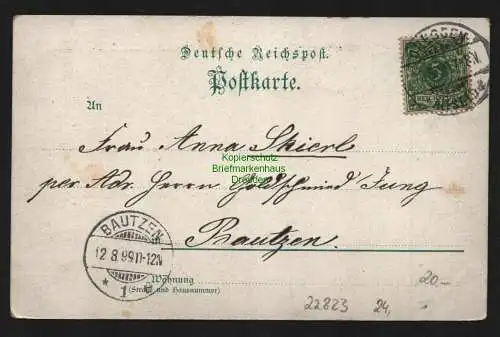 Deutsche Reichspost.
Postkarte.
An
Frau Anna Skierl
Kopierschutz
Briefmarkenhaus
Dresden
per Adr. Herrn Goldschmied Jung
Bautzen.
BAUTZEN
12 8.99 11-12N
* 1
Wohnung
(Straße und Hausnummer)
20.-
22823 24,